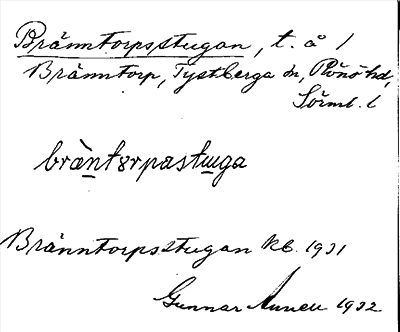 Bränntorpsstugan, t. å 1
Bränntorp, Tystberga sn, Rönö hd,
Sörml. l
brä̀nt8rpastuga
Bränntorpsstugan kb. 1931
Gunnar 1932